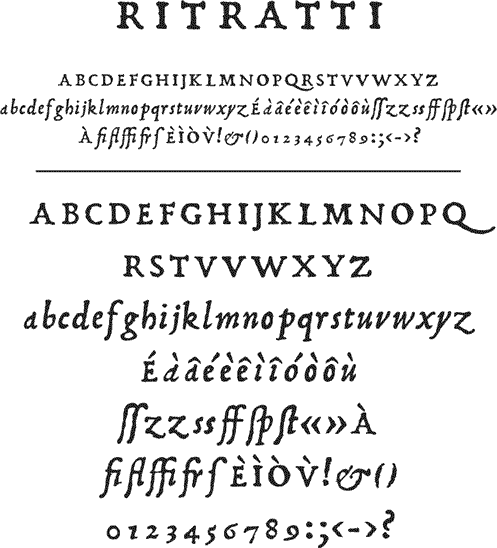 RITRATTI
ABCDEFGHIJKLMNOPQRSTVVWXYZ
abcdefghijklmnopqrstuvwxyzÉàâéèêìîóòôùſſzzssffſpſt«»
Àfiflffifrſ ÈÌÒV̀!&()0123456789:;<->?
ABCDEFGHIJKLMNOPQ
RSTVVWXYZ
abcdefghijklmnopqrstuvwxyz
Éàâéèêìîóòôù
ſſzzssffſpſt«»À
fiflffifrſ ÈÌÒV̀!&()
0123456789:;<->?